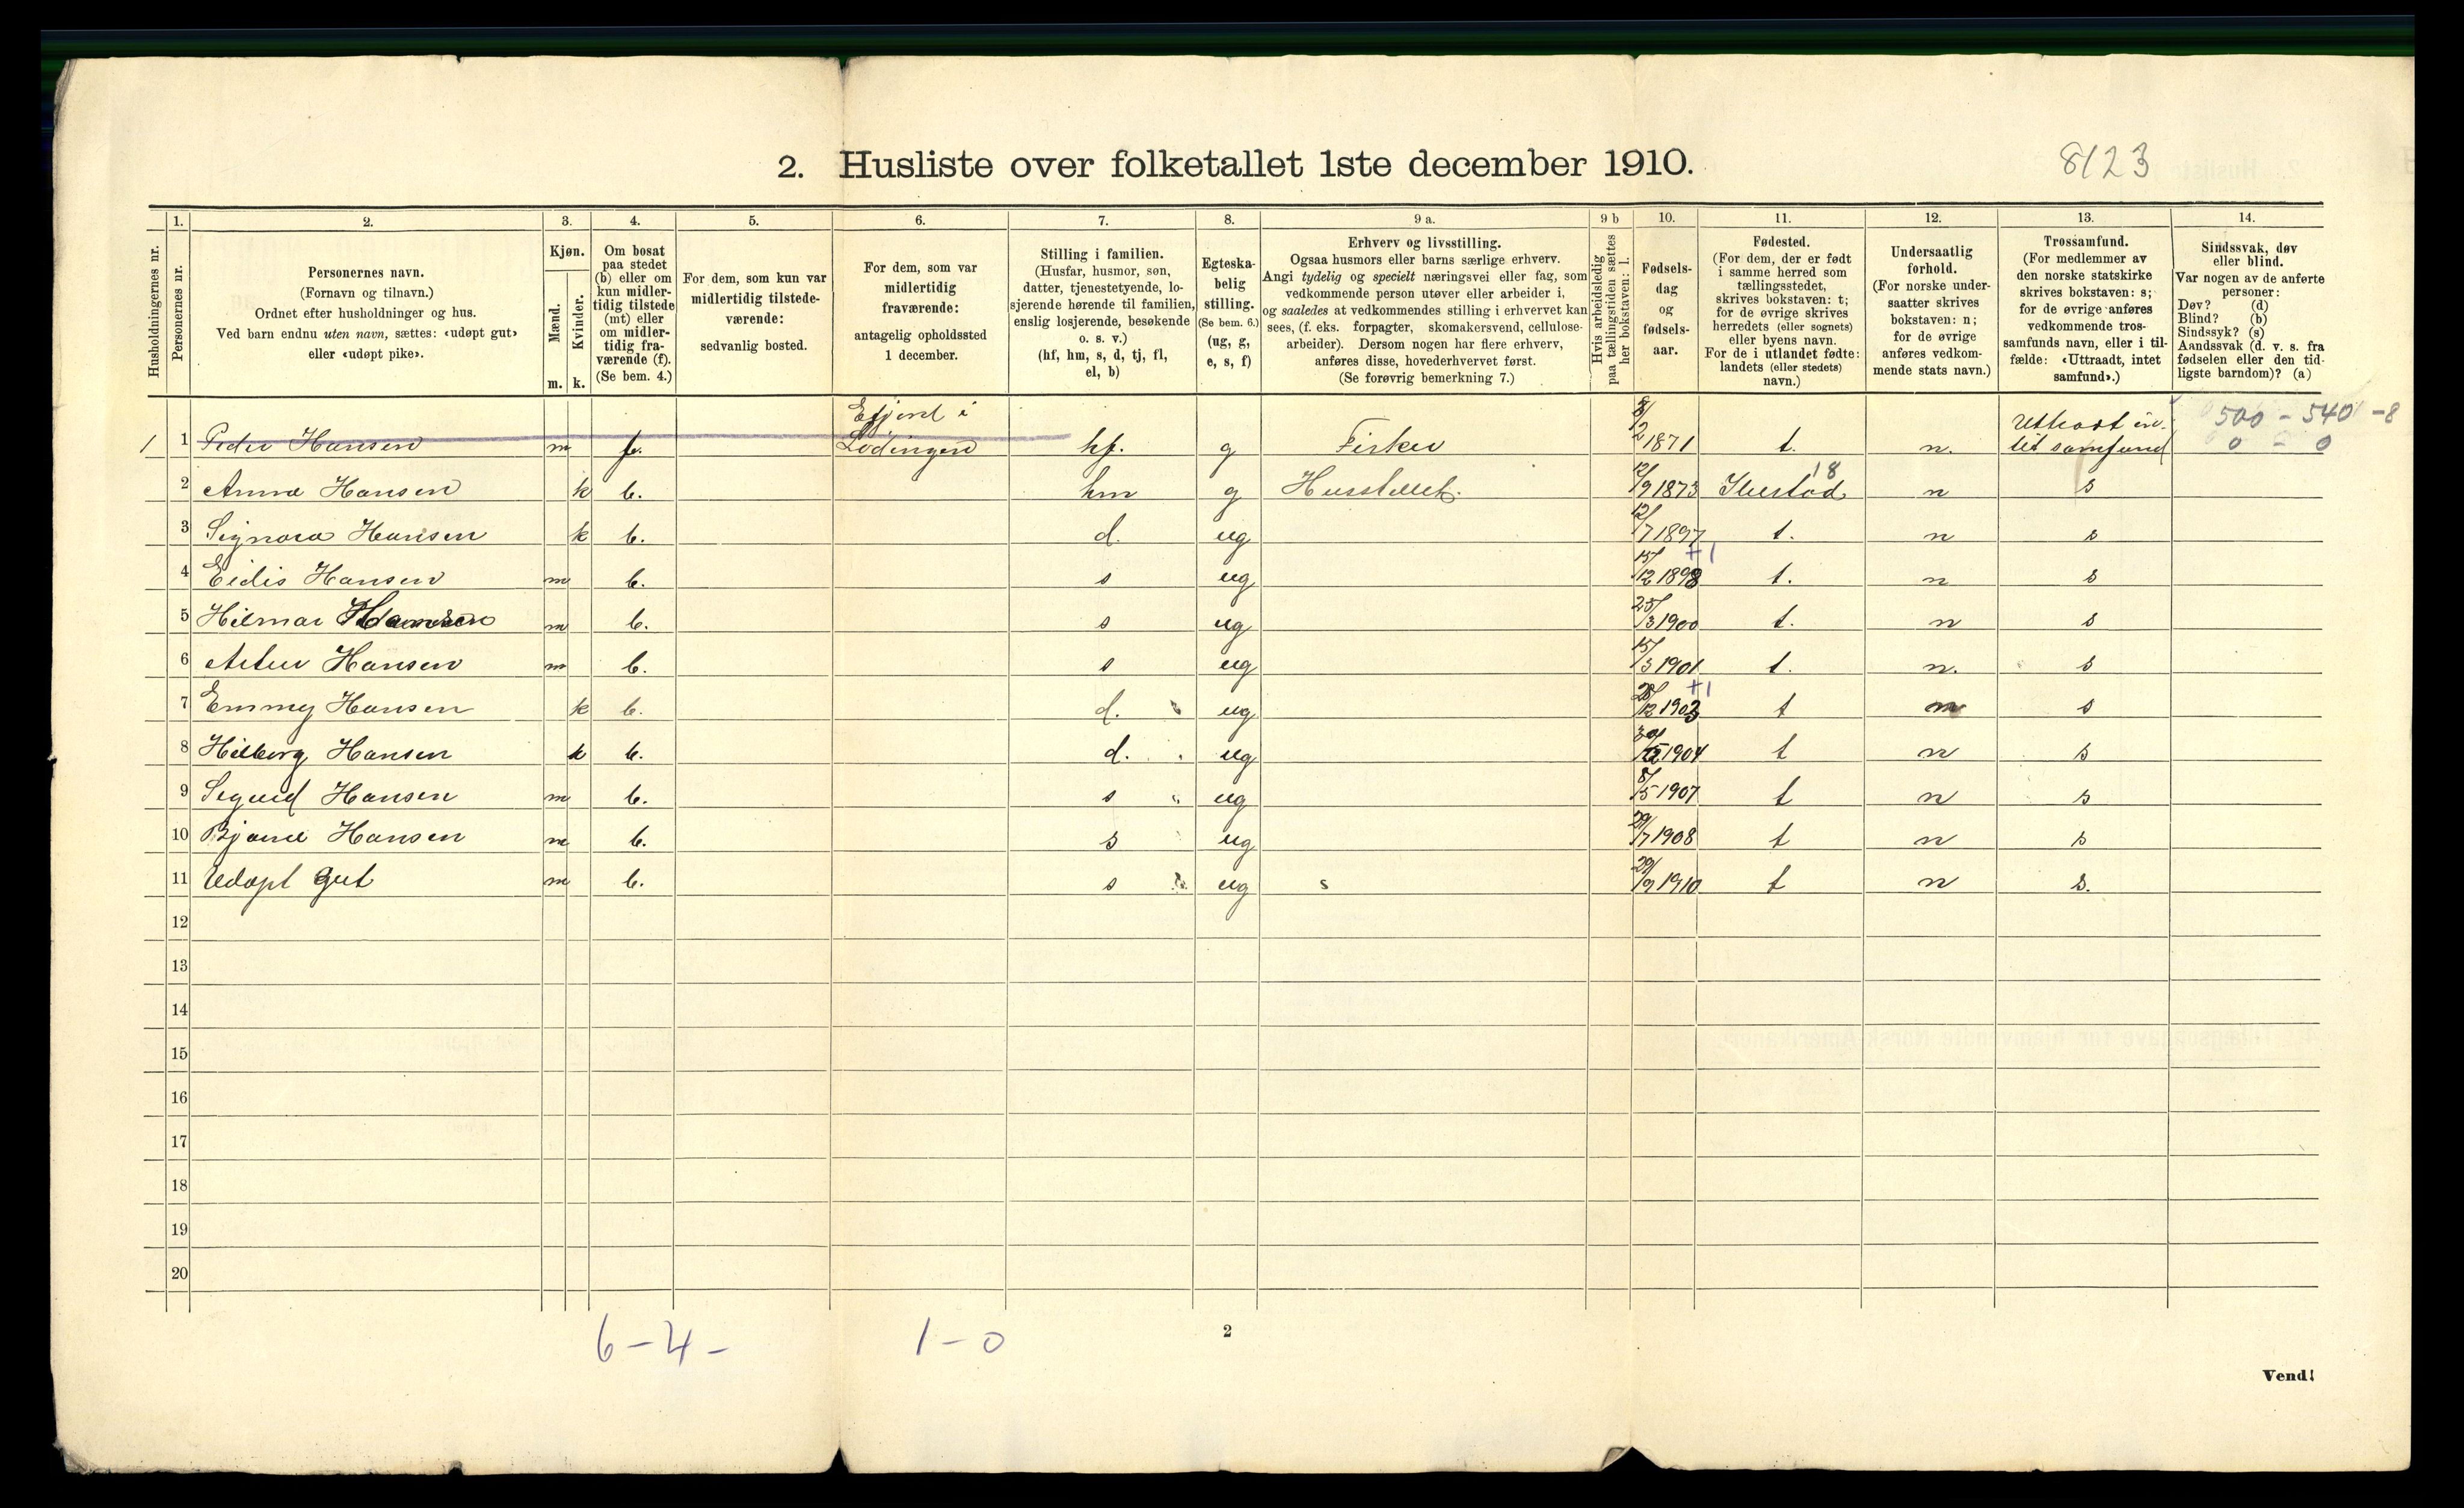 2. Husliste over folketallet 1ste december 1910.
8123
Husholdningernes nr.
1.
Personernes nr.
2.
Personernes navn.
(Fornavn og tilnavn.)
Ordnet efter husholdninger og hus.
Ved barn endnu uten navn, sættes: «udøpt gut»
eller «udøpt pike».
3.
Kjøn.
Mænd.
Kvinder.
m. k.
4.
Om bosat
paa stedet
(b) eller om
kun midler-
tidig tilstede
(mt) eller
om midler-
tidig fra-
værende (f).
(Se bem. 4.)
5.
For dem, som kun var
midlertidig tilstede-
værende:
sedvanlig bosted.
6.
For dem, som var
midlertidig
fraværende:
antagelig opholdssted
1 december.
7.
Stilling i familien.
(Husfar, husmor, søn,
datter, tjenestetyende, lo-
sjerende hørende til familien,
enslig losjerende, besøkende
o. s. v.)
(hf, hm, s, d, tj, fl,
el, b)
8.
Egteska-
belig
stilling.
(Se bem. 6.)
(ug, g,
e, s, f)
9 a.
Erhverv og livsstilling.
Ogsaa husmors eller barns særlige erhverv.
Angi tydelig og specielt næringsvei eller fag, som
vedkommende person utøver eller arbeider i,
og saaledes at vedkommendes stilling i erhvervet kan
sees, (f. eks. forpagter, skomakersvend, cellulose-
arbeider). Dersom nogen har flere erhverv,
anføres disse, hovederhvervet først.
(Se forøvrig bemerkning 7.)
9 b
Hvis arbeidsledig
paa tællingstiden sættes
her bokstaven: l.
10.
Fødsels-
dag
og
fødsels-
aar.
11.
Fødested.
(For dem, der er født
i samme herred som
tællingsstedet,
skrives bokstaven: t;
for de øvrige skrives
herredets (eller sognets)
eller byens navn.
For de i utlandet fødte:
landets (eller stedets)
navn.)
12.
Undersaatlig
forhold.
(For norske under-
saatter skrives
bokstaven: n;
for de øvrige
anføres vedkom-
mende stats navn.)
13.
Trossamfund.
(For medlemmer av
den norske statskirke
skrives bokstaven: s;
for de øvrige anføres
vedkommende tros-
samfunds navn, eller i til-
fælde: «Uttraadt, intet
samfund».)
14.
Sindssvak, døv
eller blind.
Var nogen av de anførte
personer:
Døv? (d)
Blind? (b)
Sindssyk? (s)
Aandssvak (d. v. s. fra
fødselen eller den tid-
ligste barndom)? (a)
500 - 540 - 8
0 - 0
1 1 Peder Hansen m f. Efjord i Lødingen hf. g Fisker 8/2 1871 t. n.
samfund
2 Anna Hansen k b. hm g Husstellet. 12/9 1873 18 n s
3 Signora Hansen k b. d. ug 12/7 1897 t. n s
4 Eidis Hansen m b. s ug 15/12 1898 +1 t. n s
5 Hilmar Hansen m b. s ug 25/3 1900 t. n s
6 Hansen m b. s ug 15/3 1901 t. n. s
7 Emmy Hansen k b. d. ug 28/12 1903 +1 t n s
8 Hilborg Hansen k b. d. ug 1904 t n s
9 Sigurd Hansen m b. s ug 8/5 1907 t n s
10 Bjarne Hansen m b. s ug 29/7 1908 t n s
11 Udøpt gut m b. s ug s 29/9 1910 t n s.
12
13
14
15
16
17
18
19
20
6 - 4 - 1 - 0
2
Vend!